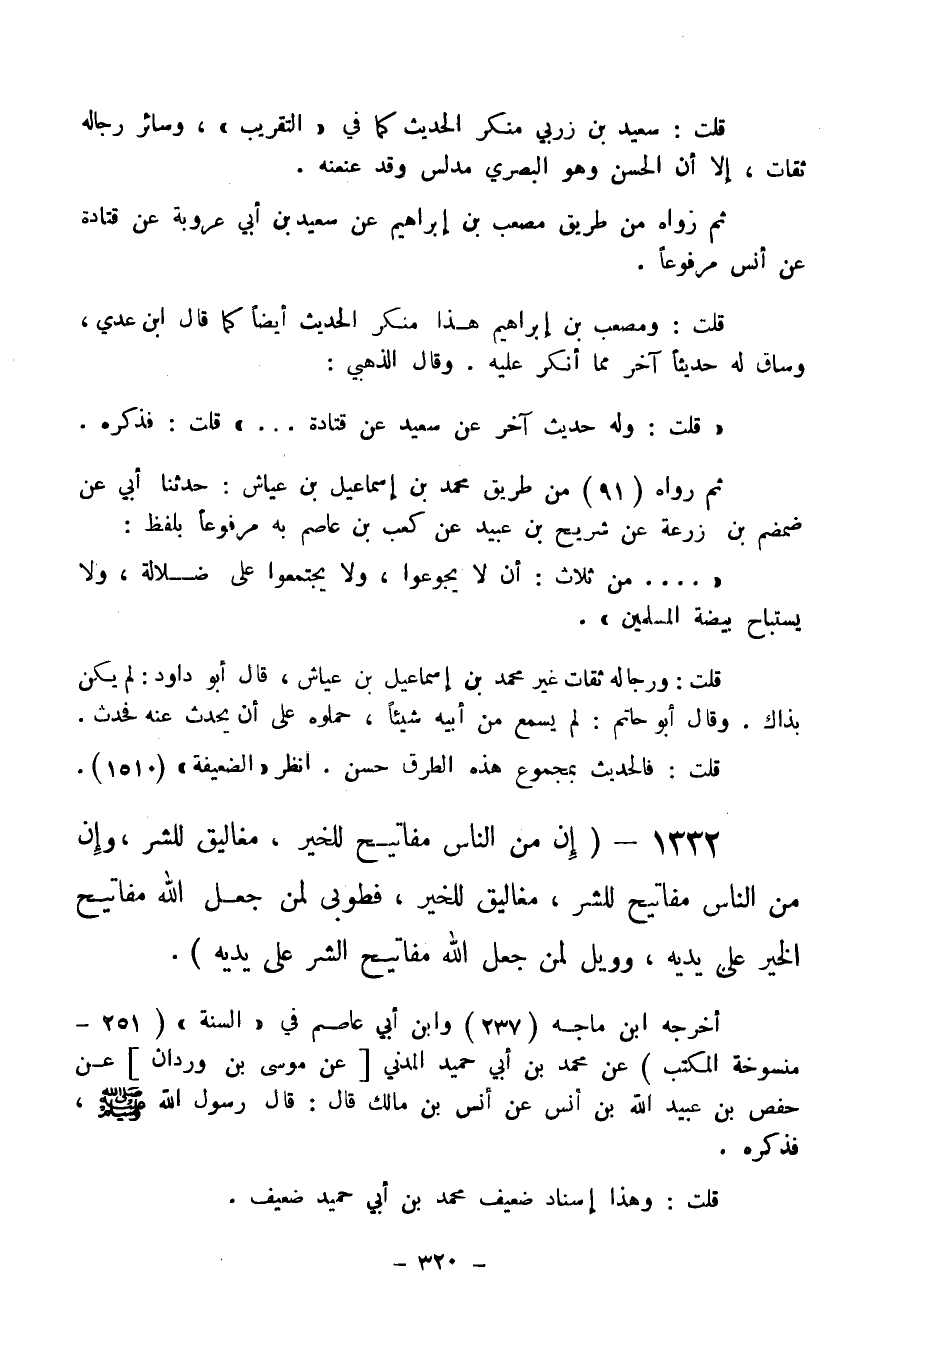 قلت : سعيد بن زربي منكر الحديث كما في « التقريب » ، وسائر رجاله
ثقات ، إلا أن الحسن وهو البصري مدلس وقد عنعنه .
ثم رواه من طريق مصعب بن إبراهيم عن سعيد بن أبي عروبة عن قتادة
عن أنس مرفوعاً .
قلت : ومصعب بن إبراهيم هـذا منكر الحديث أيضاً كما قال ابن عدي ،
وساق له حديثاً آخر مما أنكر عليه . وقال الذهبي :
« قلت : وله حديث آخر عن سعيد عن قتادة ... » قلت : فذكره .
ثم رواه ( ٩١ ) من طريق محمد بن إسماعيل بن عياش : حدثنا أبي عن
ضمضم بن زرعة عن شريح بن عبيد عن كعب بن عاصم به مرفوعاً بلفظ :
« .... من ثلاث : أن لا يجوعوا ، ولا يجتمعوا على ضـلالة ، ولا
يستباح بيضة المسلمين » .
قلت : ورجاله ثقات غير محمد بن إسماعيل بن عياش ، قال أبو داود : لم يكن
بذاك . وقال أبو حاتم : لم يسمع من أبيه شيئاً ، حملوه على أن يحدث عنه فحدث .
قلت : فالحديث بمجموع هذه الطرق حسن . انظر « الضعيفة » (١٥١٠) .
١٣٣٢ – ( إن من الناس مفاتيـح للخير ، مغاليق للشر ، وإن
من الناس مفاتيح للشر ، مغاليق للخير ، فطوبى لمن جعـل الله مفاتيـح
الخير على يديه ، وويل لمن جعل الله مفاتيـح الشر على يديه ) .
أخرجه ابن ماجـه ( ٢٣٧ ) وابن أبي عاصـم في « السنة » ( ٢٥١ –
منسوخة المكتب ) عن محمد بن أبي حميد المدني [ عن موسى بن وردان ] عـن
حفص بن عبيد الله بن أنس عن أنس بن مالك قال : قال رسول الله ﷺ ،
فذكره .
قلت : وهذا إسناد ضعيف محمد بن أبي حميد ضعيف .
– ٣٢٠ –